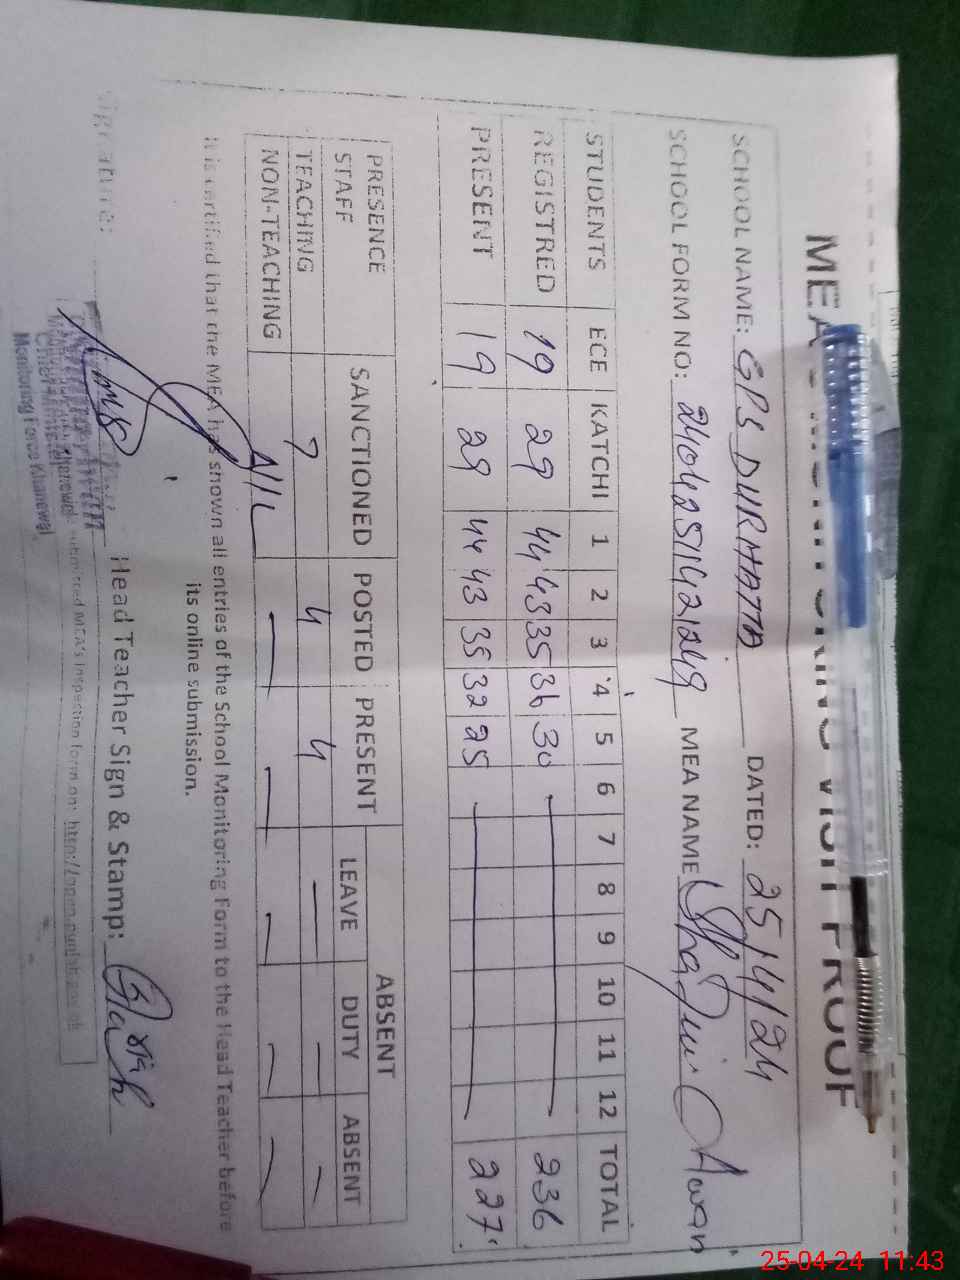 SCHOOL NAME: GPS DURHATTA DATED: 25/4/24
SCHOOL FORM NO: MEA NAME Awan
STUDENTS ECE KATCHI 1 2 3 4 5 6 7 8 9 10 11 12 TOTAL
REGISTRED 19 29 44 43 35 36 30 236
PRESENT 19 29 44 43 35 32 25 227
PRESENCE STAFF SANCTIONED POSTED PRESENT ABSENT
LEAVE DUTY ABSENT
TEACHING 7 4 4 — — —
NON-TEACHING — — — — —
It is certified that the MEA has shown all entries of the School Monitoring Form to the Head Teacher before
its online submission.
Signature: Head Teacher Sign & Stamp:
Monitoring Force Khanewal
25-04-24 11:43